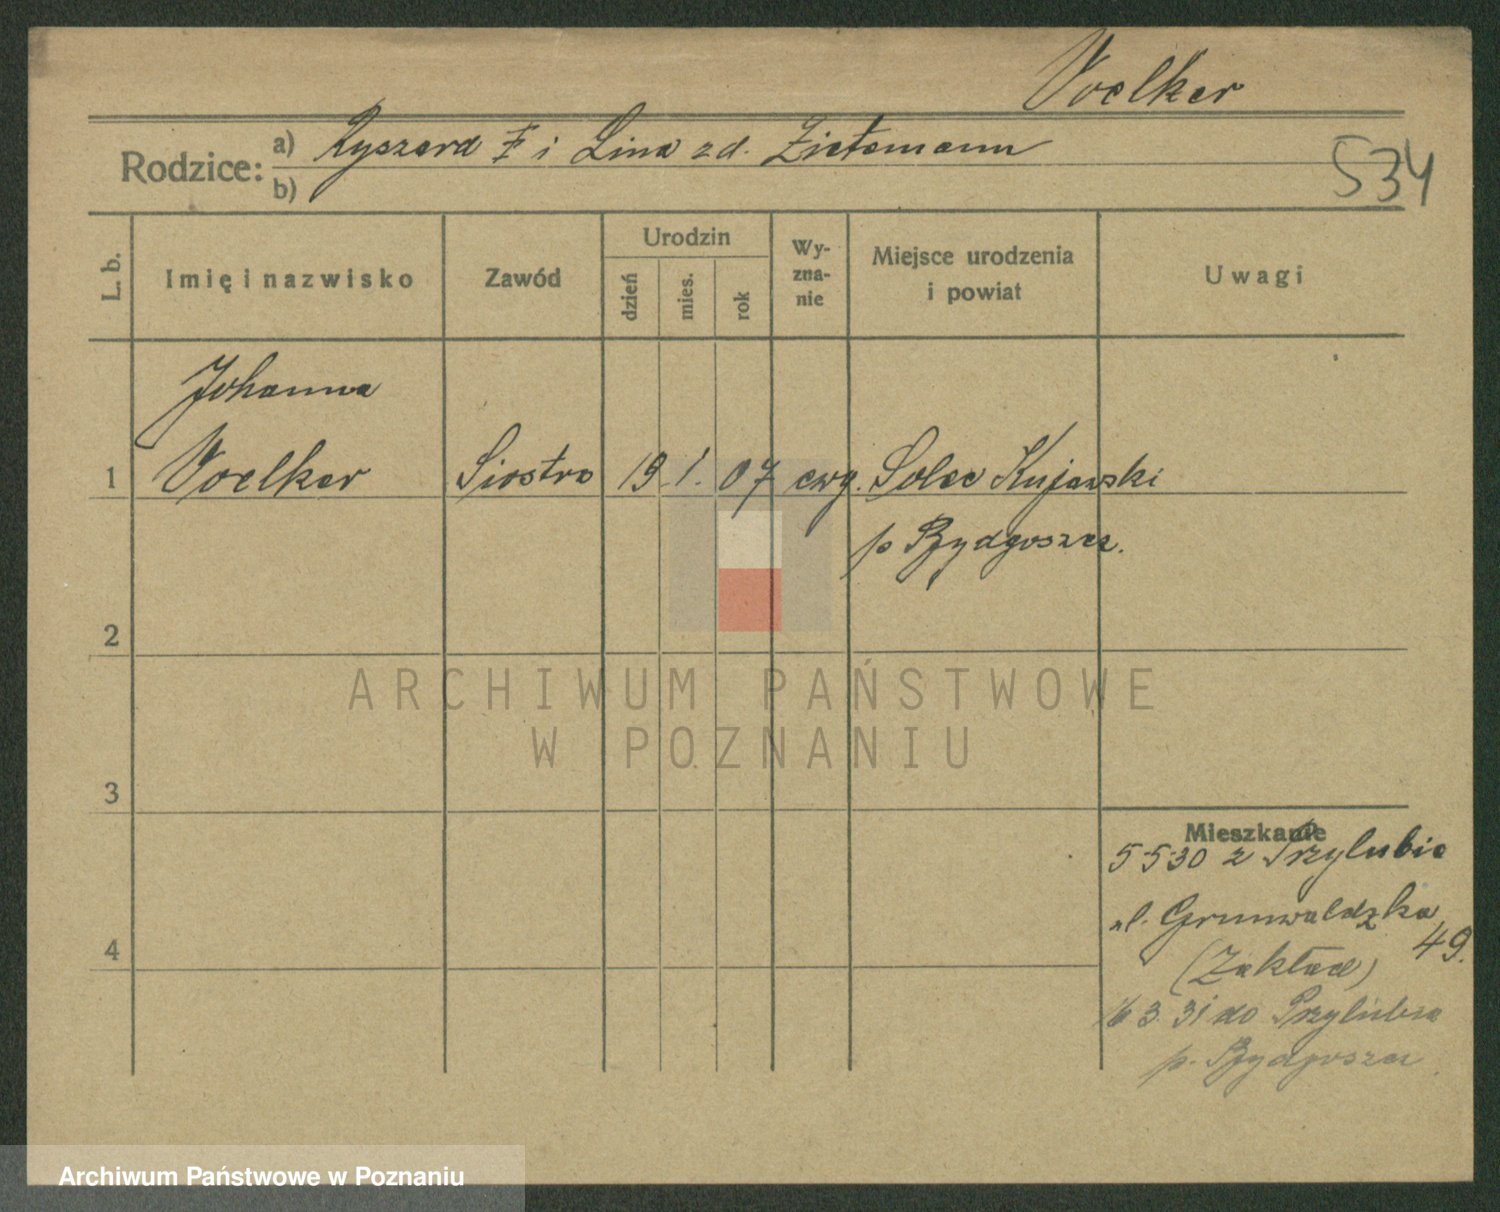 Voelker
Rodzice: a) Ryszard i Lina zd. Zietemann
b)
534
L. b.
Imię i nazwisko
Zawód
Urodzin
dzień
mies.
rok
Wy-
zna-
nie
Miejsce urodzenia
i powiat
Uwagi
Johanna
1 Voelker Siostra 19 1. 07 ewg. Solec Kujawski
p Bydgoszcz.
2
ARCHIWUM PAŃSTWOWE
W POZNANIU
3
Mieszkanie
5 5 30 z Przylubie
ul. Grunwaldzka
49.
(Zakład)
4
16 3 31 do Przylubia
p. Bydgoszcz
Archiwum Państwowe w Poznaniu